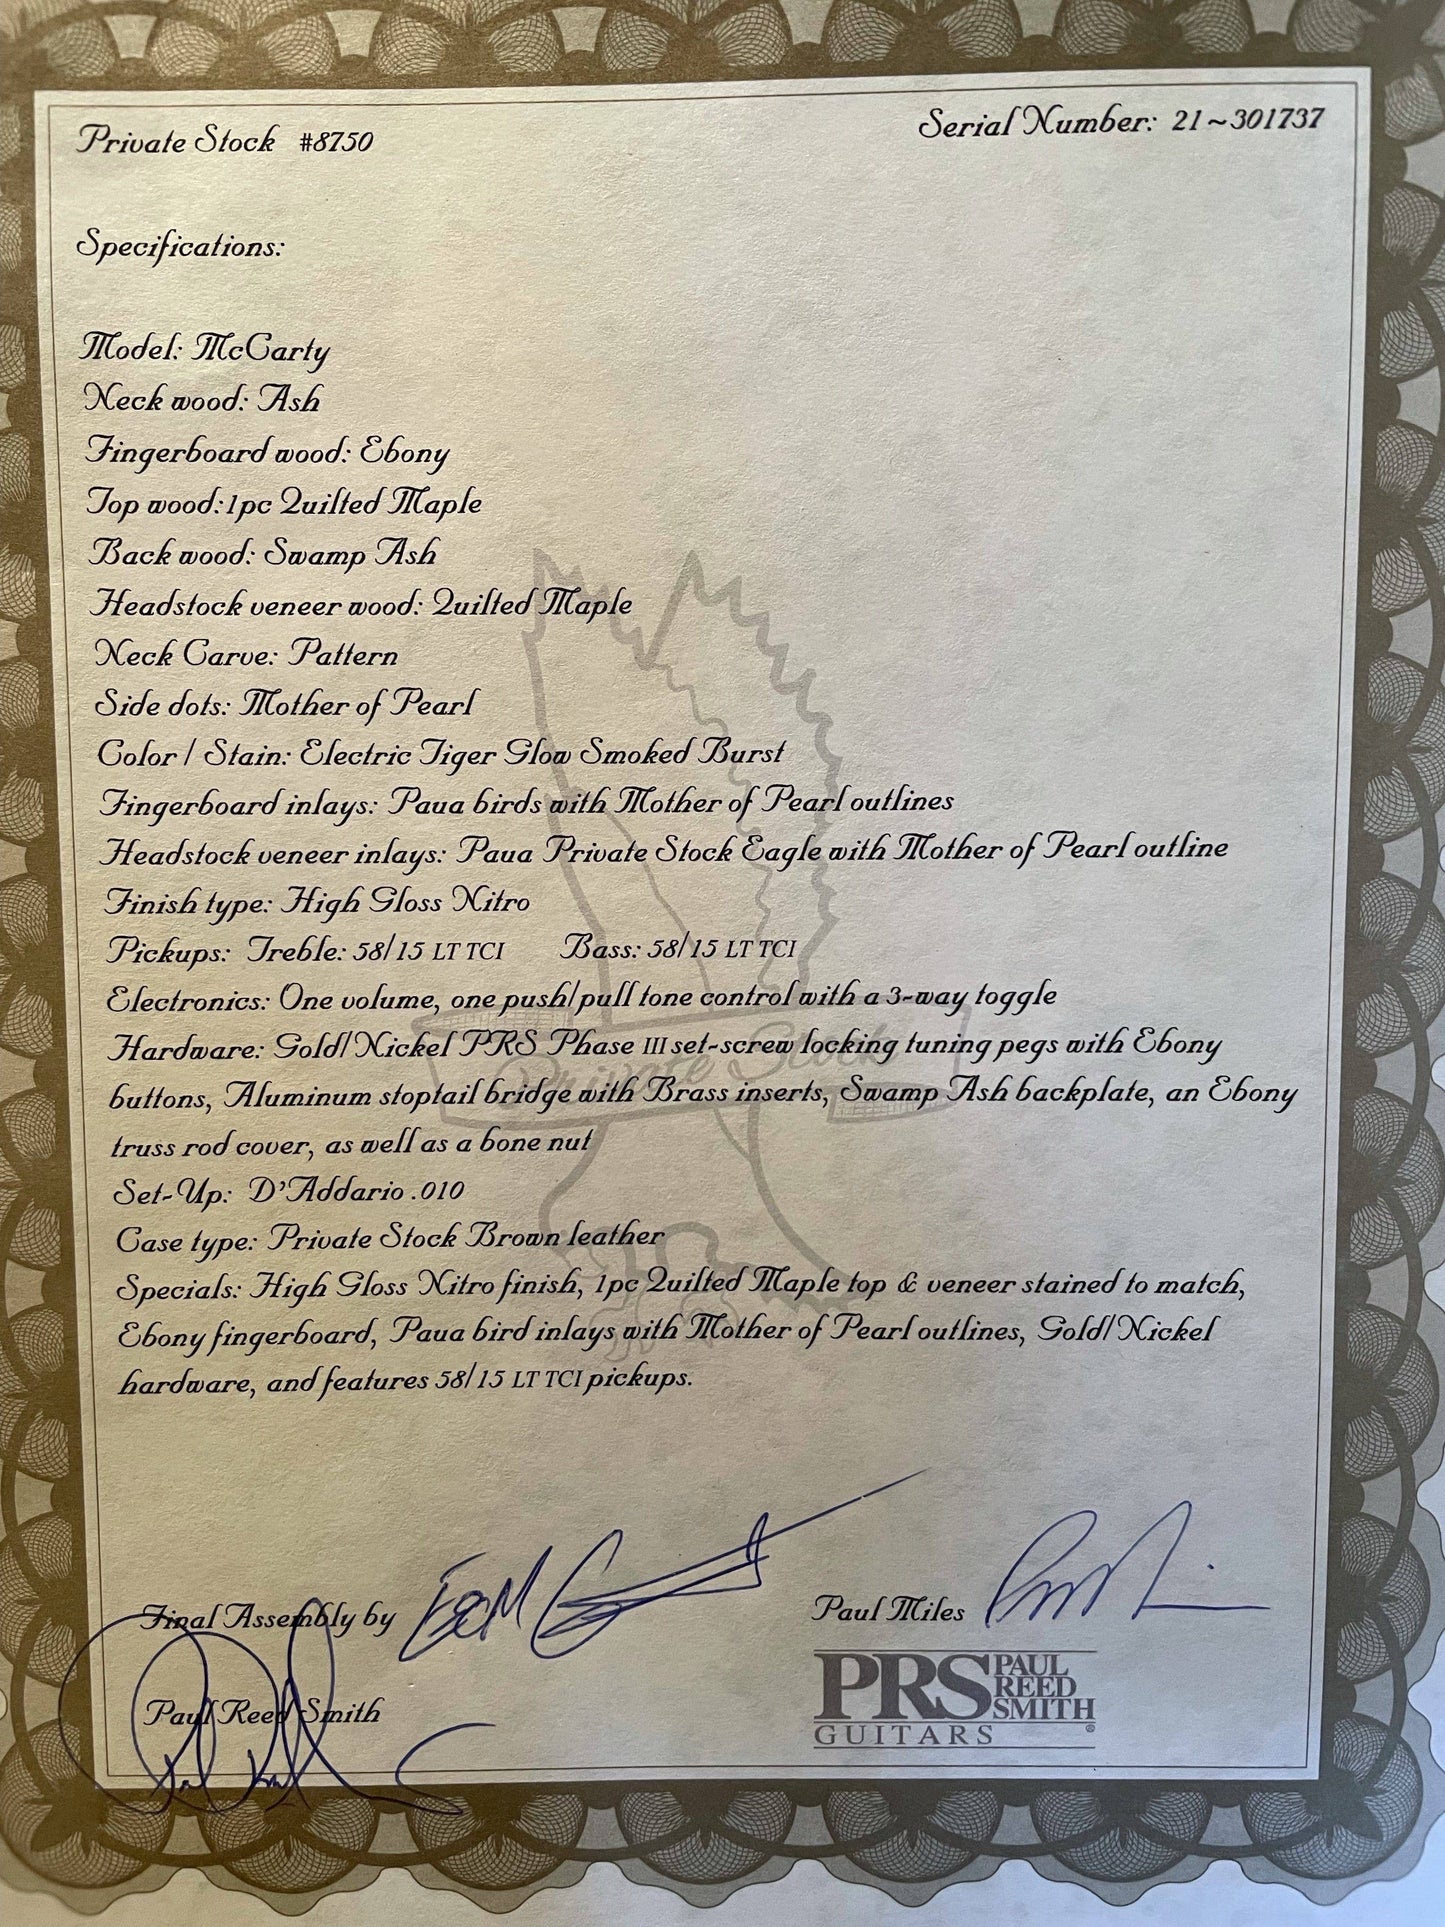 Private Stock #8750
Serial Number: 21~301737
Specifications:
Model: McCarty
Neck wood: Ash
Fingerboard wood: Ebony
Top wood:1pc Quilted Maple
Back wood: Swamp Ash
Headstock veneer wood: Quilted Maple
Neck Carve: Pattern
Side dots: Mother of Pearl
Color / Stain: Electric Tiger Glow Smoked Burst
Fingerboard inlays: Paua birds with Mother of Pearl outlines
Headstock veneer inlays: Paua Private Stock Eagle with Mother of Pearl outline
Finish type: High Gloss Nitro
Pickups: Treble: 58/15 LT TCI Bass: 58/15 LT TCI
Electronics: One volume, one push/pull tone control with a 3-way toggle
Hardware: Gold/Nickel PRS Phase III set-screw locking tuning pegs with Ebony
buttons, Aluminum stoptail bridge with Brass inserts, Swamp Ash backplate, an Ebony
truss rod cover, as well as a bone nut
Set-Up: D'Addario .010
Case type: Private Stock Brown leather
Specials: High Gloss Nitro finish, 1pc Quilted Maple top & veneer stained to match,
Ebony fingerboard, Paua bird inlays with Mother of Pearl outlines, Gold/Nickel
hardware, and features 58/15 LT TCI pickups.
Private Stock
Final Assembly by
Paul Miles
Paul Reed Smith
PRS PAUL
REED
SMITH
GUITARS ®